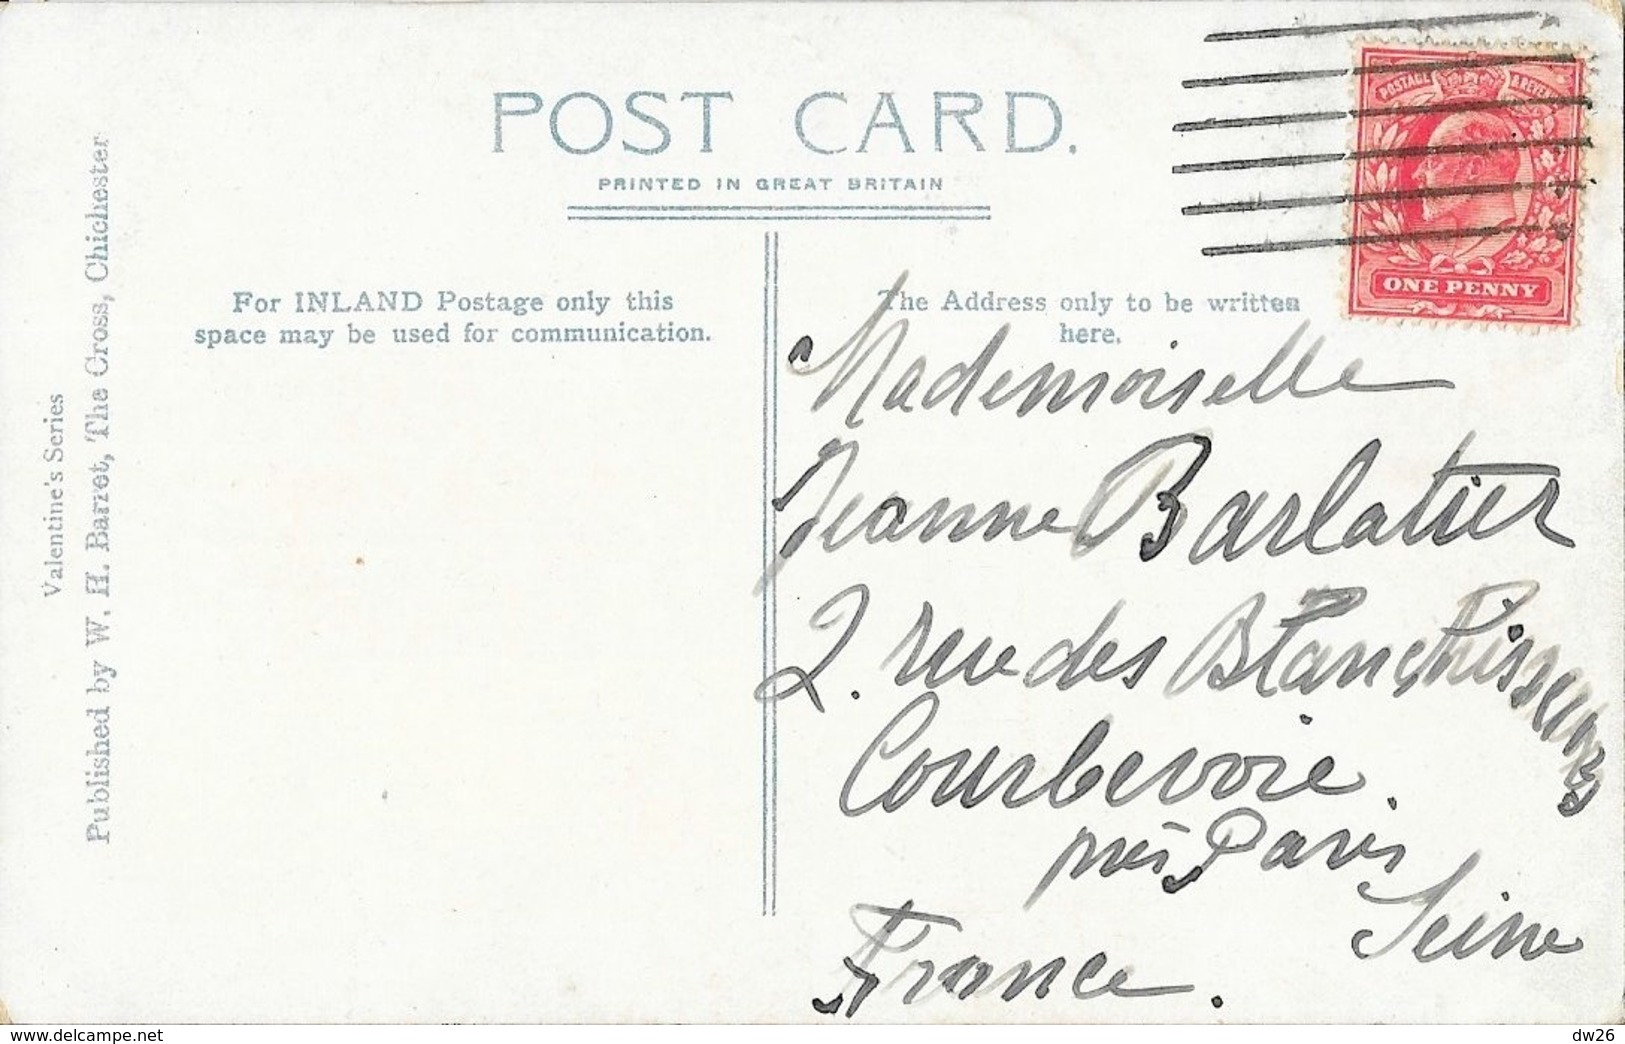 POST CARD.
PRINTED IN GREAT BRITAIN
For INLAND Postage only this
space may be used for communication.
The Address only to be written
here.
Valentine's Series
Published by W. H. Barret, The Cross, Chichester
POSTAGE & REVENUE
ONE PENNY
Mademoiselle
Jeanne Barlatier
2. rue des Blanchisseurs
Courbevoie.
près Paris
Seine
France.
delcampe.net
dw26